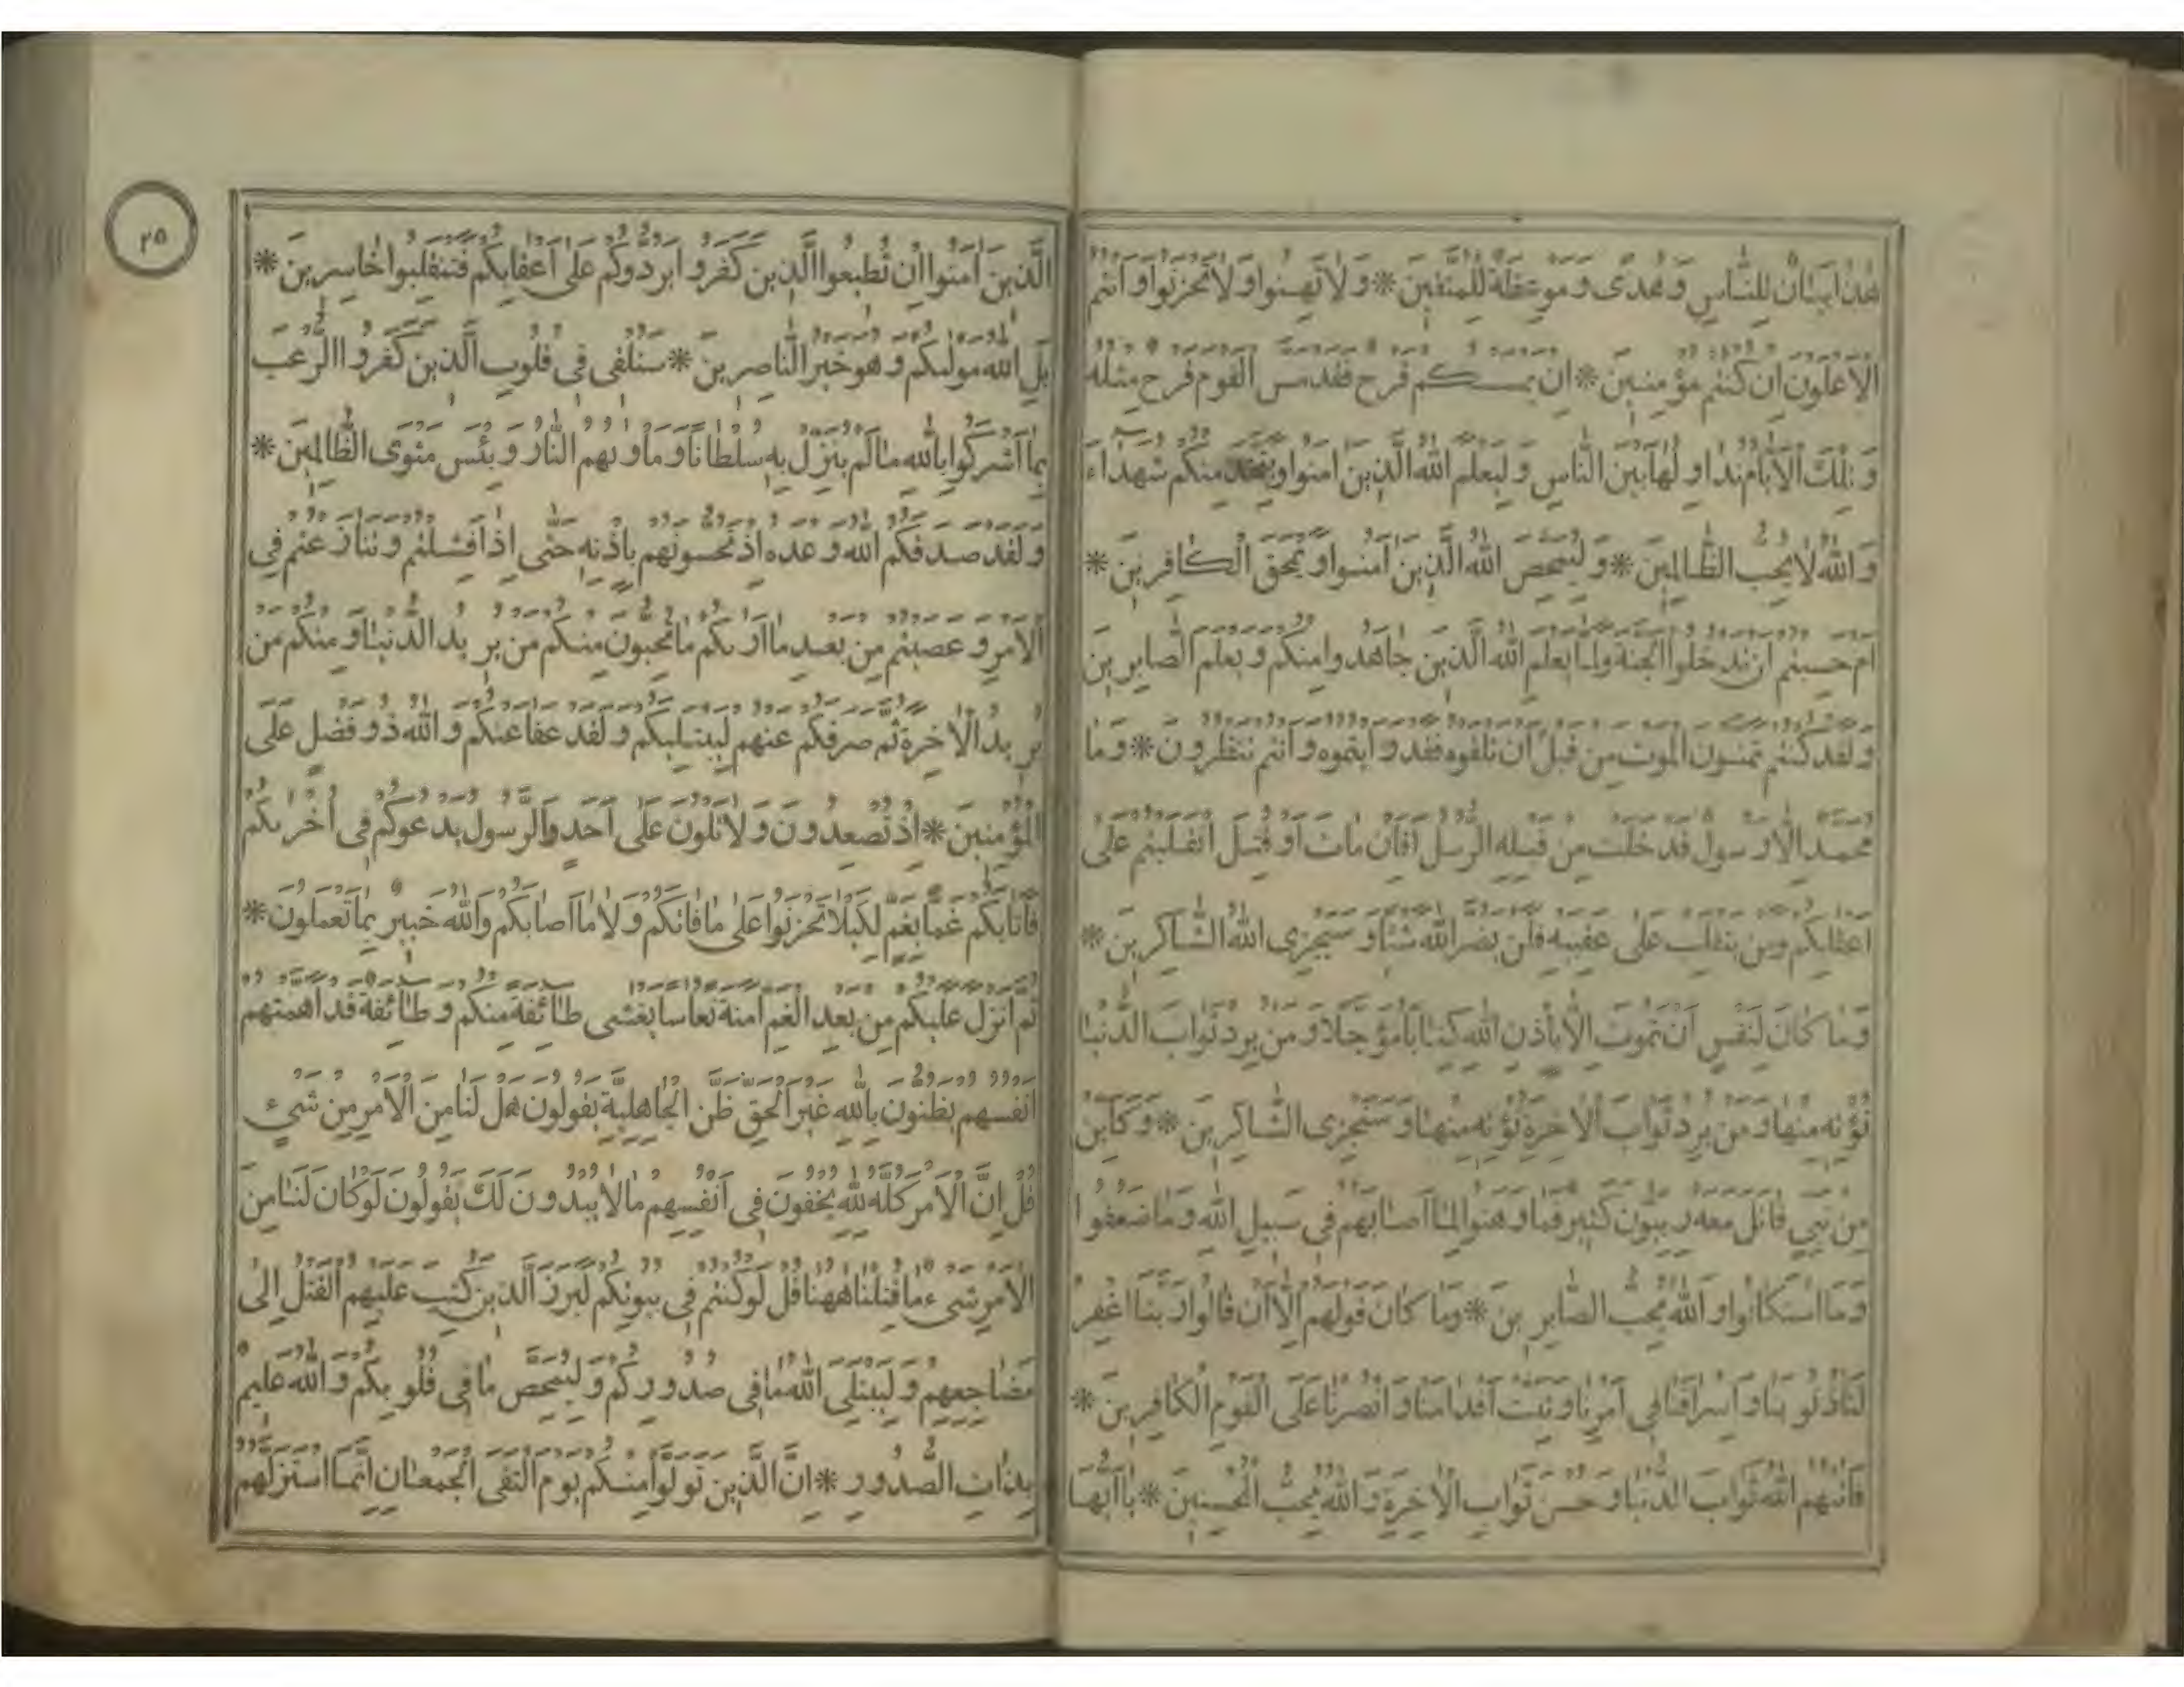 هٰذَا بَيَانٌ لِلنَّاسِ وَهُدًى وَمَوْعِظَةٌ لِلْمُتَّقِينَ * وَلَا تَهِنُوا وَلَا تَحْزَنُوا وَأَنْتُمُ
الْأَعْلَوْنَ إِنْ كُنْتُمْ مُؤْمِنِينَ * إِنْ يَمْسَسْكُمْ قَرْحٌ فَقَدْ مَسَّ الْقَوْمَ قَرْحٌ مِثْلُهُ
وَتِلْكَ الْأَيَّامُ نُدَاوِلُهَا بَيْنَ النَّاسِ وَلِيَعْلَمَ اللهُ الَّذِينَ آمَنُوا وَيَتَّخِذَ مِنْكُمْ شُهَدَاءَ
وَاللهُ لَا يُحِبُّ الظَّالِمِينَ * وَلِيُمَحِّصَ اللهُ الَّذِينَ آمَنُوا وَيَمْحَقَ الْكَافِرِينَ *
أَمْ حَسِبْتُمْ أَنْ تَدْخُلُوا الْجَنَّةَ وَلَمَّا يَعْلَمِ اللهُ الَّذِينَ جَاهَدُوا مِنْكُمْ وَيَعْلَمَ الصَّابِرِينَ
وَلَقَدْ كُنْتُمْ تَمَنَّوْنَ الْمَوْتَ مِنْ قَبْلِ أَنْ تَلْقَوْهُ فَقَدْ رَأَيْتُمُوهُ وَأَنْتُمْ تَنْظُرُونَ * وَمَا
مُحَمَّدٌ إِلَّا رَسُولٌ قَدْ خَلَتْ مِنْ قَبْلِهِ الرُّسُلُ أَفَإِنْ مَاتَ أَوْ قُتِلَ انْقَلَبْتُمْ عَلَى
أَعْقَابِكُمْ وَمَنْ يَنْقَلِبْ عَلَى عَقِبَيْهِ فَلَنْ يَضُرَّ اللهَ شَيْئًا وَسَيَجْزِي اللهُ الشَّاكِرِينَ *
وَمَا كَانَ لِنَفْسٍ أَنْ تَمُوتَ إِلَّا بِإِذْنِ اللهِ كِتَابًا مُؤَجَّلًا وَمَنْ يُرِدْ ثَوَابَ الدُّنْيَا
نُؤْتِهِ مِنْهَا وَمَنْ يُرِدْ ثَوَابَ الْآخِرَةِ نُؤْتِهِ مِنْهَا وَسَنَجْزِي الشَّاكِرِينَ * وَكَأَيِّنْ
مِنْ نَبِيٍّ قَاتَلَ مَعَهُ رِبِّيُّونَ كَثِيرٌ فَمَا وَهَنُوا لِمَا أَصَابَهُمْ فِي سَبِيلِ اللهِ وَمَا ضَعُفُوا
وَمَا اسْتَكَانُوا وَاللهُ يُحِبُّ الصَّابِرِينَ * وَمَا كَانَ قَوْلَهُمْ إِلَّا أَنْ قَالُوا رَبَّنَا اغْفِرْ
لَنَا ذُنُوبَنَا وَإِسْرَافَنَا فِي أَمْرِنَا وَثَبِّتْ أَقْدَامَنَا وَانْصُرْنَا عَلَى الْقَوْمِ الْكَافِرِينَ *
فَآتٰهُمُ اللهُ ثَوَابَ الدُّنْيَا وَحُسْنَ ثَوَابِ الْآخِرَةِ وَاللهُ يُحِبُّ الْمُحْسِنِينَ * يَا أَيُّهَا
٢٥
الَّذِينَ آمَنُوا إِنْ تُطِيعُوا الَّذِينَ كَفَرُوا يَرُدُّوكُمْ عَلَى أَعْقَابِكُمْ فَتَنْقَلِبُوا خَاسِرِينَ *
بَلِ اللهُ مَوْلٰيكُمْ وَهُوَ خَيْرُ النَّاصِرِينَ * سَنُلْقِي فِي قُلُوبِ الَّذِينَ كَفَرُوا الرُّعْبَ
بِمَا أَشْرَكُوا بِاللهِ مَا لَمْ يُنَزِّلْ بِهِ سُلْطَانًا وَمَأْوٰيهُمُ النَّارُ وَبِئْسَ مَثْوَى الظَّالِمِينَ *
وَلَقَدْ صَدَقَكُمُ اللهُ وَعْدَهُ إِذْ تَحُسُّونَهُمْ بِإِذْنِهِ حَتَّى إِذَا فَشِلْتُمْ وَتَنَازَعْتُمْ فِي
الْأَمْرِ وَعَصَيْتُمْ مِنْ بَعْدِ مَا أَرٰيكُمْ مَا تُحِبُّونَ مِنْكُمْ مَنْ يُرِيدُ الدُّنْيَا وَمِنْكُمْ مَنْ
يُرِيدُ الْآخِرَةَ ثُمَّ صَرَفَكُمْ عَنْهُمْ لِيَبْتَلِيَكُمْ وَلَقَدْ عَفَا عَنْكُمْ وَاللهُ ذُو فَضْلٍ عَلَى
الْمُؤْمِنِينَ * إِذْ تُصْعِدُونَ وَلَا تَلْوُونَ عَلَى أَحَدٍ وَالرَّسُولُ يَدْعُوكُمْ فِي أُخْرٰيكُمْ
فَأَثَابَكُمْ غَمًّا بِغَمٍّ لِكَيْلَا تَحْزَنُوا عَلَى مَا فَاتَكُمْ وَلَا مَا أَصَابَكُمْ وَاللهُ خَبِيرٌ بِمَا تَعْمَلُونَ *
ثُمَّ أَنْزَلَ عَلَيْكُمْ مِنْ بَعْدِ الْغَمِّ أَمَنَةً نُعَاسًا يَغْشَى طَائِفَةً مِنْكُمْ وَطَائِفَةٌ قَدْ أَهَمَّتْهُمْ
أَنْفُسُهُمْ يَظُنُّونَ بِاللهِ غَيْرَ الْحَقِّ ظَنَّ الْجَاهِلِيَّةِ يَقُولُونَ هَلْ لَنَا مِنَ الْأَمْرِ مِنْ شَيْءٍ
قُلْ إِنَّ الْأَمْرَ كُلَّهُ لِلهِ يُخْفُونَ فِي أَنْفُسِهِمْ مَا لَا يُبْدُونَ لَكَ يَقُولُونَ لَوْ كَانَ لَنَا مِنَ
الْأَمْرِ شَيْءٌ مَا قُتِلْنَا هٰهُنَا قُلْ لَوْ كُنْتُمْ فِي بُيُوتِكُمْ لَبَرَزَ الَّذِينَ كُتِبَ عَلَيْهِمُ الْقَتْلُ إِلَى
مَضَاجِعِهِمْ وَلِيَبْتَلِيَ اللهُ مَا فِي صُدُورِكُمْ وَلِيُمَحِّصَ مَا فِي قُلُوبِكُمْ وَاللهُ عَلِيمٌ
بِذَاتِ الصُّدُورِ * إِنَّ الَّذِينَ تَوَلَّوْا مِنْكُمْ يَوْمَ الْتَقَى الْجَمْعَانِ إِنَّمَا اسْتَزَلَّهُمُ